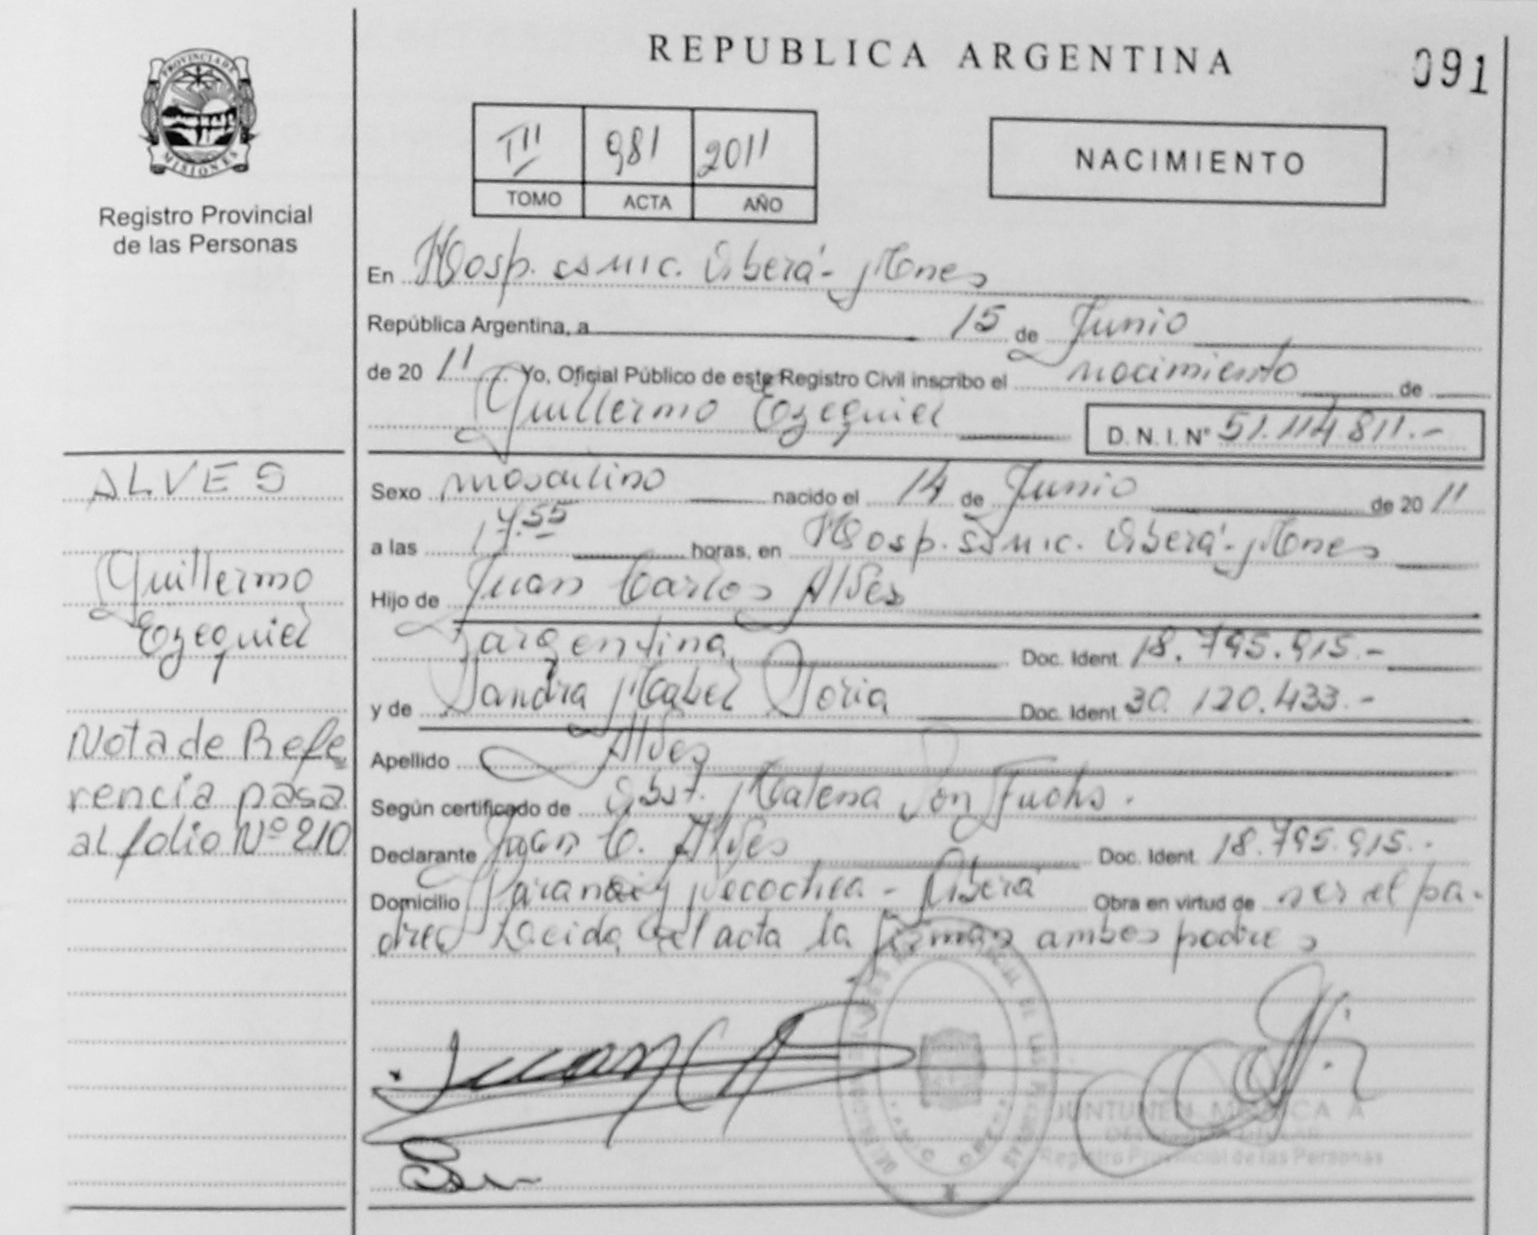 REPUBLICA ARGENTINA
091
PROVINCIA DE MISIONES
Registro Provincial
de las Personas
TIII 981 2011
TOMO ACTA AÑO
NACIMIENTO
En Hosp. ssmic. Oberá - Mones
República Argentina, a 15 de Junio
de 2011 Yo, Oficial Público de este Registro Civil inscribo el nacimiento de
Guillermo Ezequiel D.N.I. Nº 51.114.811.-
Sexo masculino nacido el 14 de Junio de 2011
a las 17.55 horas, en Hosp. ssmic. Oberá - Mones
Hijo de Juan Carlos Alves
argentina Doc. Ident. 18.795.915.-
y de Sandra Mabel Doria Doc. Ident 30.120.433.-
Apellido Alves
Según certificado de Obst. Malena Von Fuchs.
Declarante Juan C. Alves Doc. Ident. 18.795.915.-
Domicilio Paranay Necochea - Oberá Obra en virtud de ser el pa-
dre. Leída el acta la firman ambos padres
ALVES
Guillermo
Ezequiel
Nota de Refe
rencia pasa
al folio Nº 210
Juan C A
JUNTUNEN MONICA A
Registro Provincial de las Personas